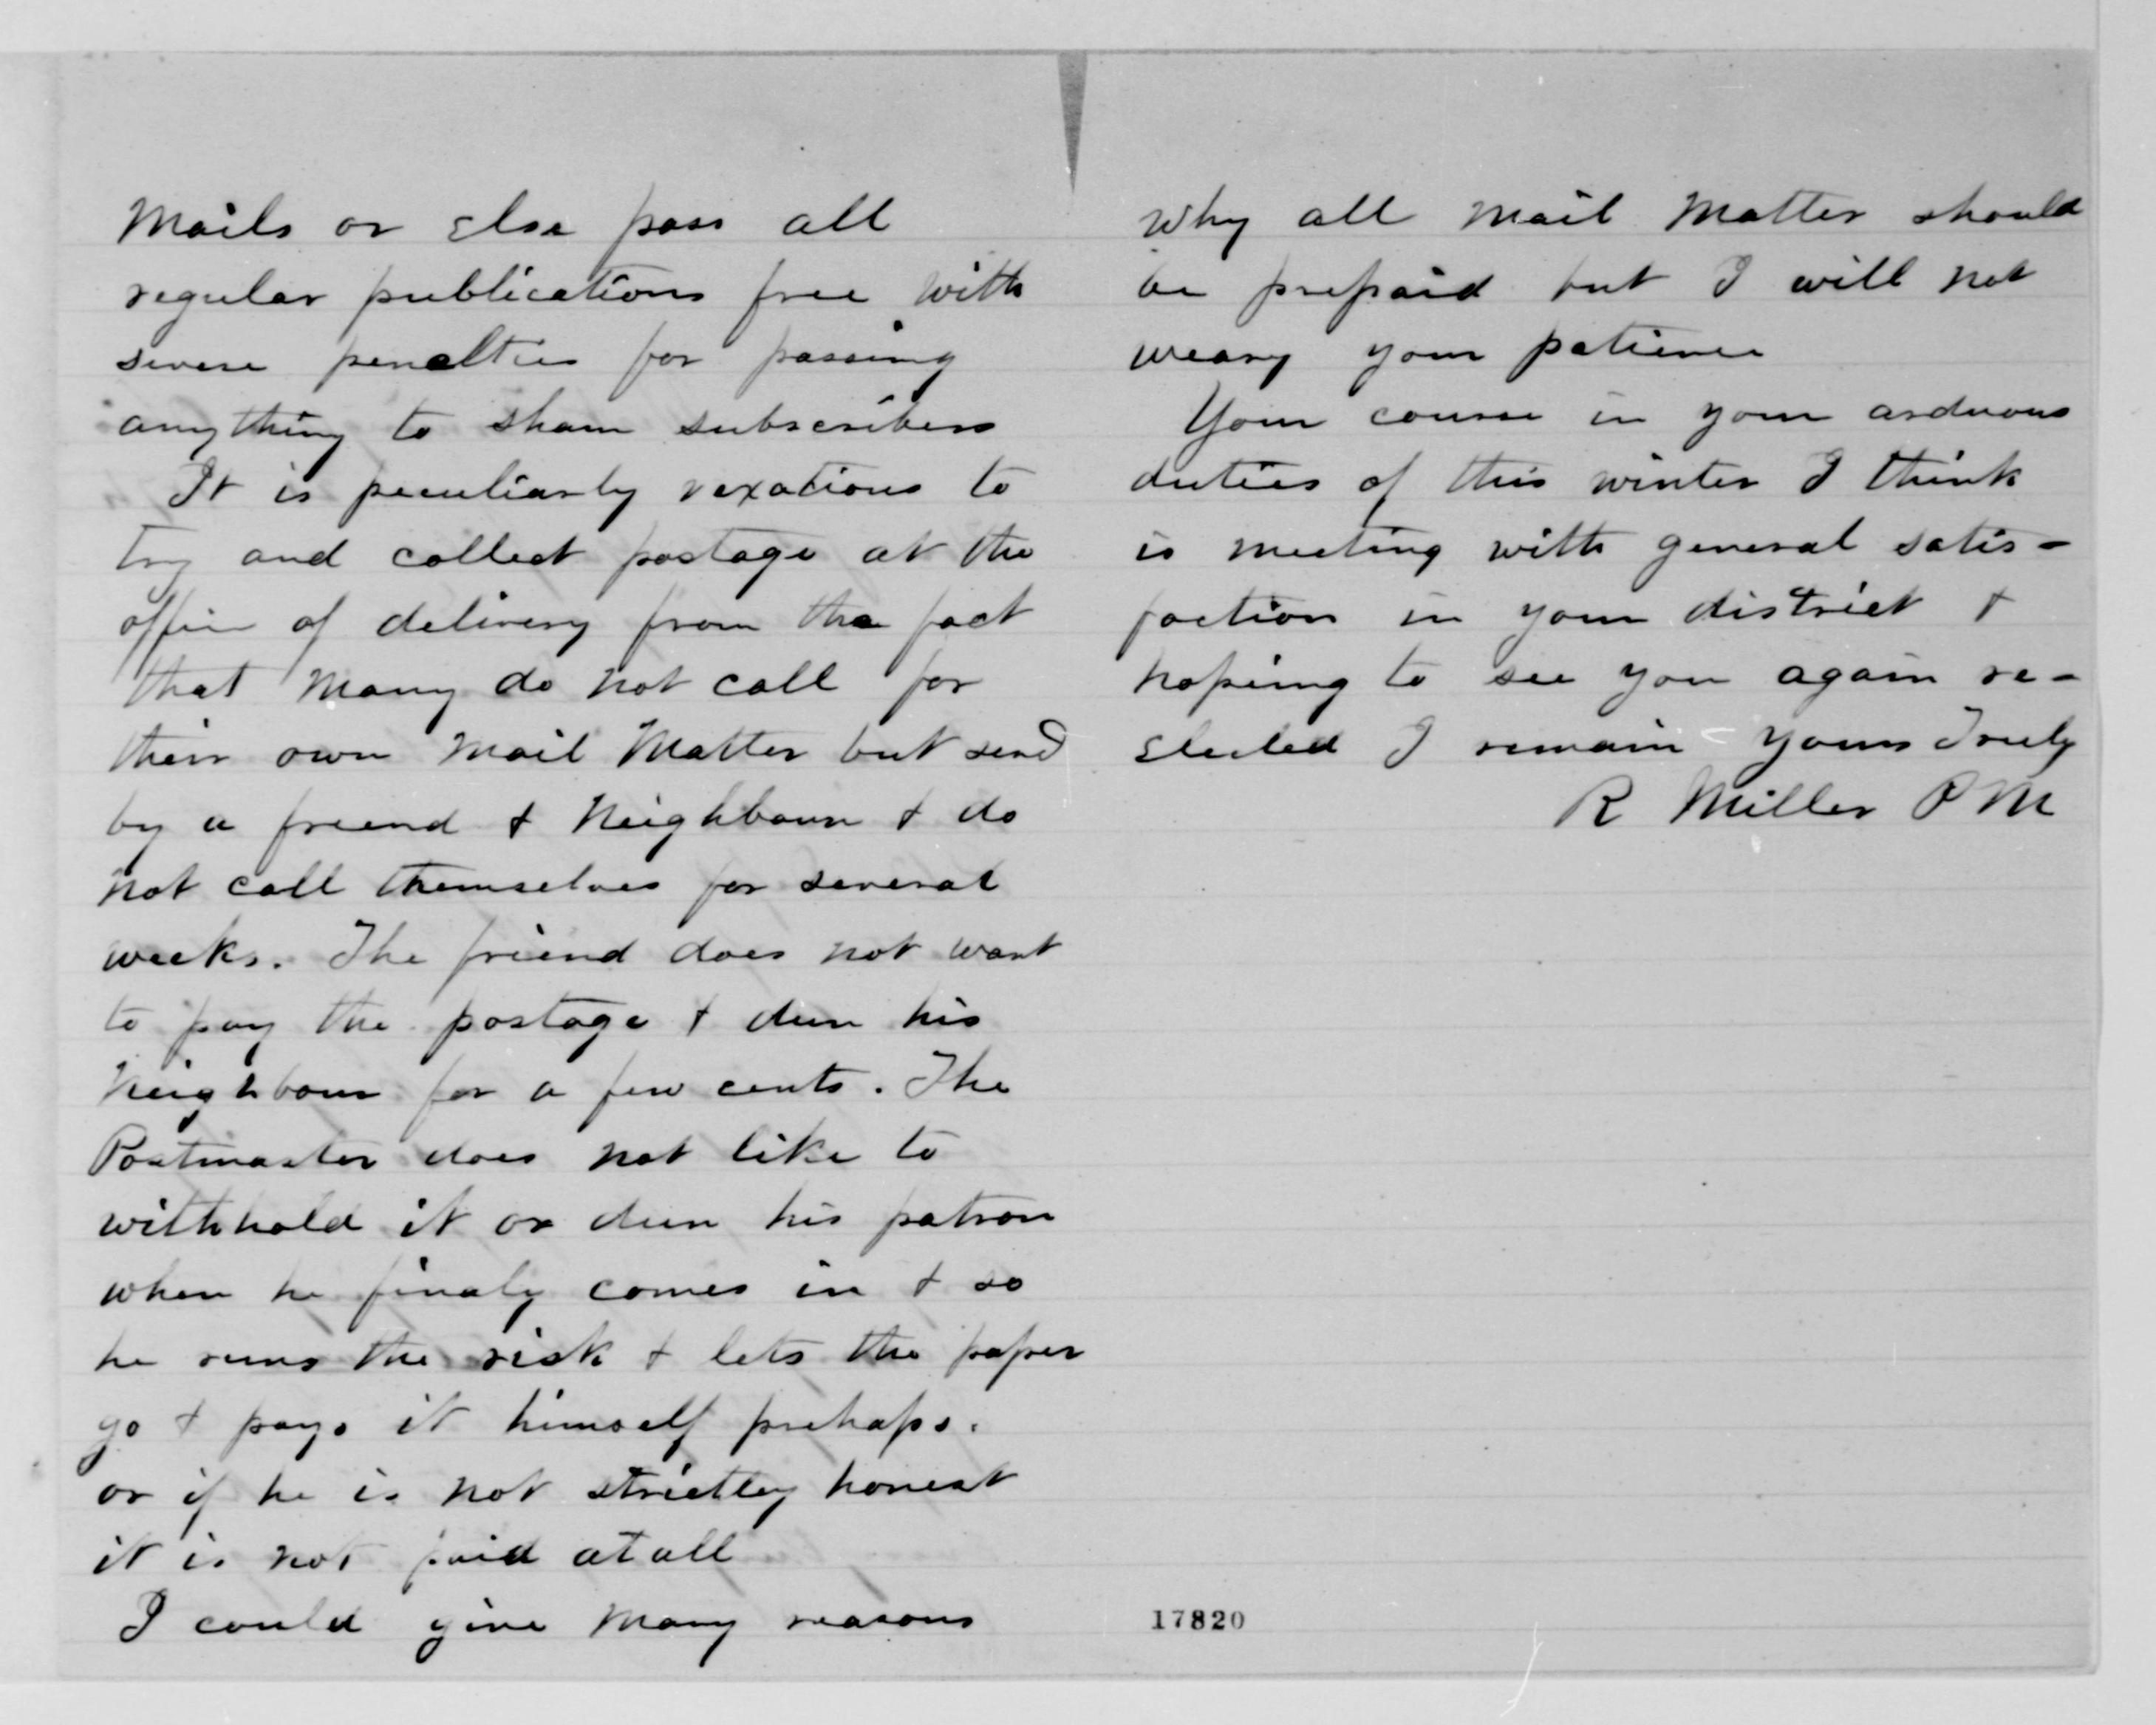 Mails or Else pass all
regular publications free with
severe penalties for passing
anything to sham subscribers
It is peculiarly vexatious to
try and collect postage at the
office of delivery from the fact
that many do not call for
their own Mail Matter but send
by a freend & Neighbour & do
not call themselves for several
weeks. The friend does not want
to pay the postage & dun his
Neighbour for a few cents. The
Postmaster does not like to
withhold it or dun his patron
when he finaly comes in & so
he runs the risk & lets the paper
go & pays it himself prehaps.
or if he is not strictley honest
it is not paid at all
I could give many reasons
Why all Mail Matter should
be prepaid but I will not
weary your patience
Your course in your arduous
duties of this winter I think
is meeting with general satis-
faction in your district &
hopeing to see you again re-
elected I remain Yours Truly
R Miller P M
17820